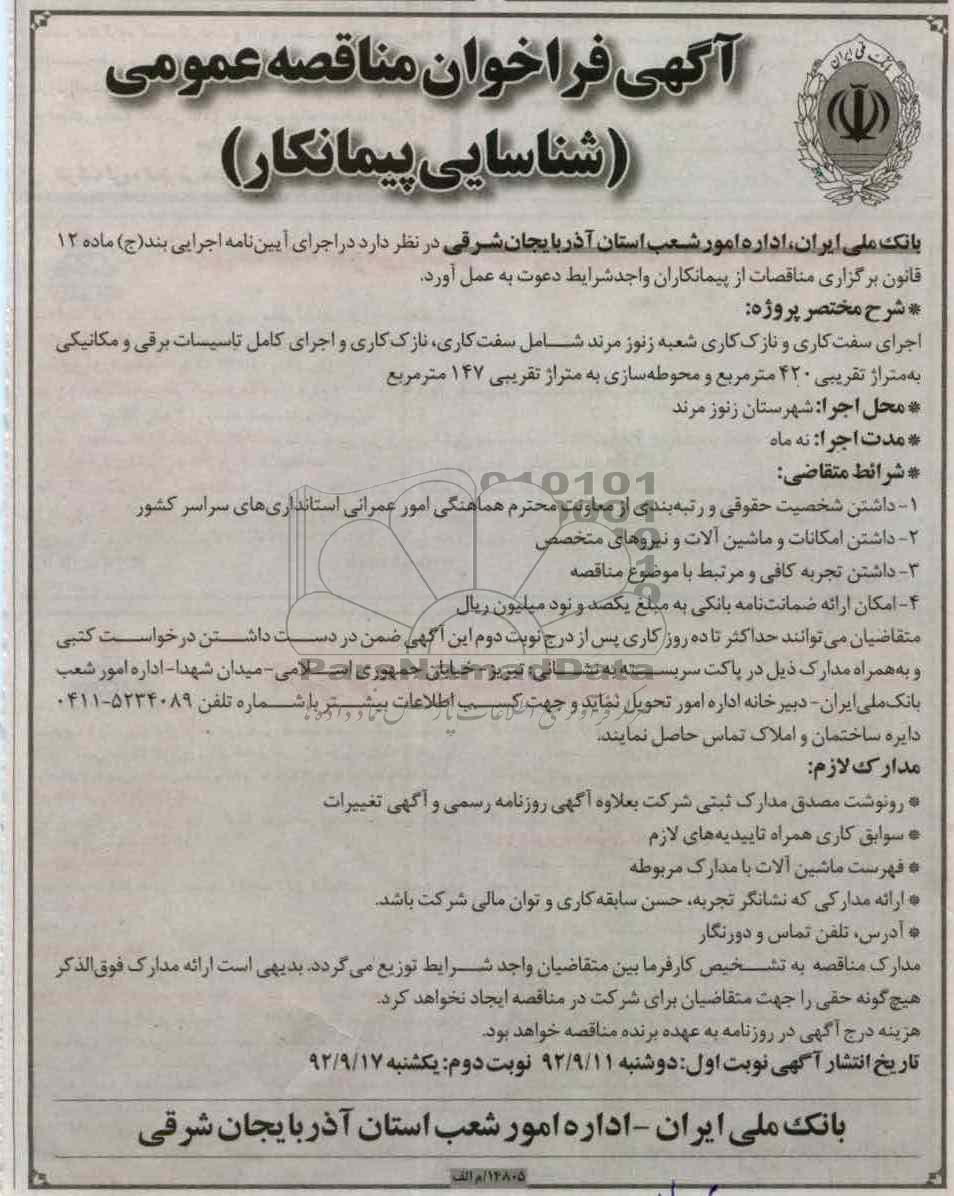 آگهی فراخوان مناقصه عمومی
(شناسایی پیمانکار)
بانک ملی ایران
بانک ملی ایران، اداره امور شعب استان آذربایجان شرقی در نظر دارد در اجرای آیین‌نامه اجرایی بند(ج) ماده ۱۲
قانون برگزاری مناقصات از پیمانکاران واجدشرایط دعوت به عمل آورد.
* شرح مختصر پروژه:
اجرای سفت‌کاری و نازک‌کاری شعبه زنوز مرند شامل سفت‌کاری، نازک‌کاری و اجرای کامل تاسیسات برقی و مکانیکی
به‌متراژ تقریبی ۴۲۰ مترمربع و محوطه‌سازی به متراژ تقریبی ۱۴۷ مترمربع
* محل اجرا: شهرستان زنوز مرند
* مدت اجرا: نه ماه
* شرائط متقاضی:
۱- داشتن شخصیت حقوقی و رتبه‌بندی از معاونت محترم هماهنگی امور عمرانی استانداری‌های سراسر کشور
۲- داشتن امکانات و ماشین آلات و نیروهای متخصص
۳- داشتن تجربه کافی و مرتبط با موضوع مناقصه
۴- امکان ارائه ضمانت‌نامه بانکی به مبلغ یکصد و نود میلیون ریال
متقاضیان می‌توانند حداکثر تا ده روز کاری پس از درج نوبت دوم این آگهی ضمن در دست داشتن درخواست کتبی
و به‌همراه مدارک ذیل در پاکت سربسته به نشانی: تبریز-خیابان جمهوری اسلامی-میدان شهدا-اداره امور شعب
بانک‌ملی‌ایران- دبیرخانه اداره امور تحویل نمایند و جهت کسب اطلاعات بیشتر با شماره تلفن ۵۲۳۴۰۸۹-۰۴۱۱
دایره ساختمان و املاک تماس حاصل نمایند.
مدارک لازم:
* رونوشت مصدق مدارک ثبتی شرکت بعلاوه آگهی روزنامه رسمی و آگهی تغییرات
* سوابق کاری همراه تاییدیه‌های لازم
* فهرست ماشین آلات با مدارک مربوطه
* ارائه مدارکی که نشانگر تجربه، حسن سابقه کاری و توان مالی شرکت باشد.
* آدرس، تلفن تماس و دورنگار
مدارک مناقصه به تشخیص کارفرما بین متقاضیان واجد شرایط توزیع می‌گردد. بدیهی است ارائه مدارک فوق‌الذکر
هیچ‌گونه حقی را جهت متقاضیان برای شرکت در مناقصه ایجاد نخواهد کرد.
هزینه درج آگهی در روزنامه به عهده برنده مناقصه خواهد بود.
تاریخ انتشار آگهی نوبت اول: دوشنبه ۹۲/۹/۱۱ نوبت دوم: یکشنبه ۹۲/۹/۱۷
بانک ملی ایران -اداره امور شعب استان آذربایجان شرقی
۱۴۸۰۵/م الف
ParsNamadData